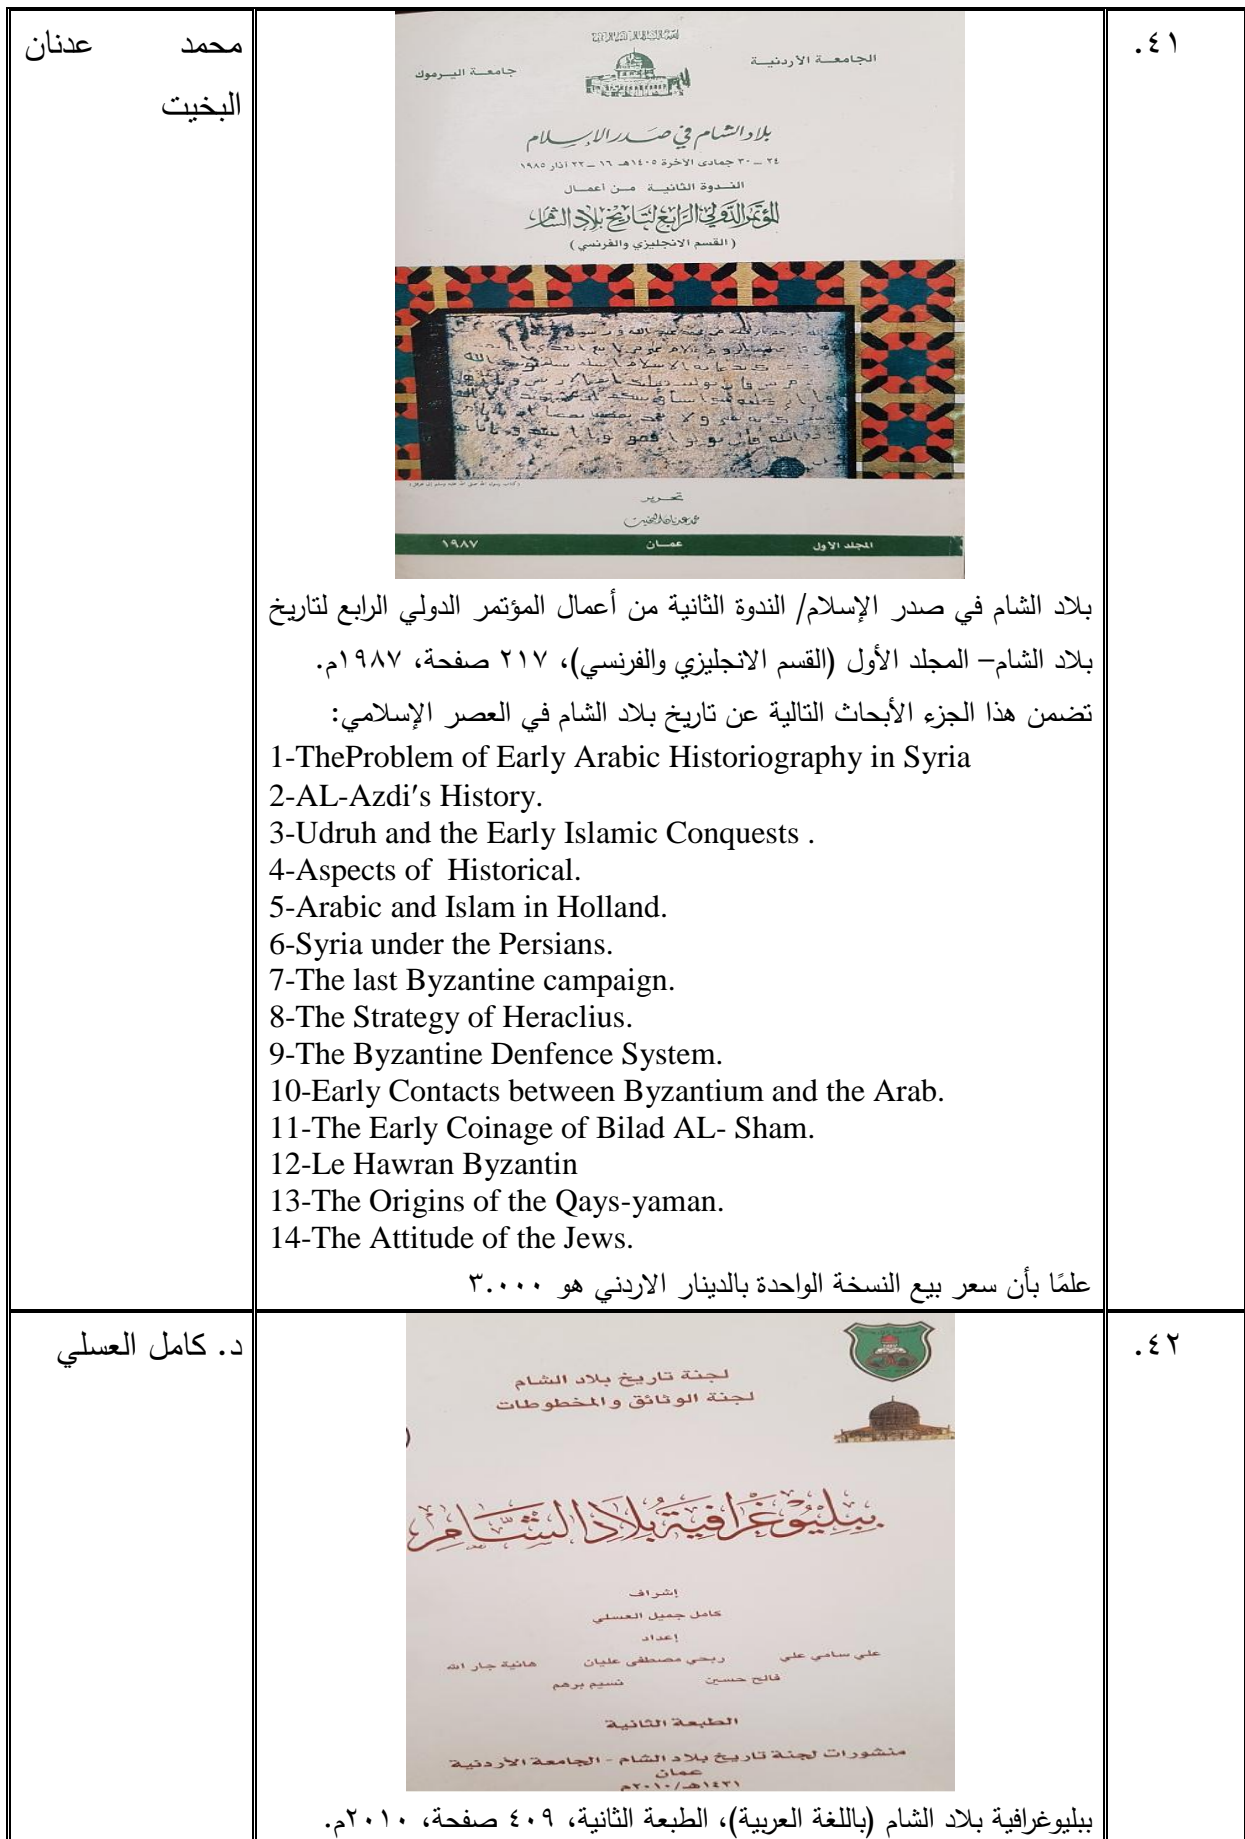 ٤١.
الجامعة الأردنية
جامعة اليرموك
بلاد الشام في صدر الإسلام
٢٤ ــ ٣٠ جمادى الآخرة ١٤٠٥هـ ١٦ ــ ٢٢ آذار ١٩٨٥
الندوة الثانية من أعمال
المؤتمر الدولي الرابع لتاريخ بلاد الشام
( القسم الانجليزي والفرنسي )
تحرير
محمد عدنان البخيت
المجلد الأول عمان ١٩٨٧
بلاد الشام في صدر الإسلام/ الندوة الثانية من أعمال المؤتمر الدولي الرابع لتاريخ
بلاد الشام– المجلد الأول (القسم الانجليزي والفرنسي)، ٢١٧ صفحة، ١٩٨٧م.
تضمن هذا الجزء الأبحاث التالية عن تاريخ بلاد الشام في العصر الإسلامي:
1-TheProblem of Early Arabic Historiography in Syria
2-AL-Azdi′s History.
3-Udruh and the Early Islamic Conquests .
4-Aspects of  Historical.
5-Arabic and Islam in Holland.
6-Syria under the Persians.
7-The last Byzantine campaign.
8-The Strategy of Heraclius.
9-The Byzantine Denfence System.
10-Early Contacts between Byzantium and the Arab.
11-The Early Coinage of Bilad AL- Sham.
12-Le Hawran Byzantin
13-The Origins of the Qays-yaman.
14-The Attitude of the Jews.
علمًا بأن سعر بيع النسخة الواحدة بالدينار الاردني هو ٣.٠٠٠
محمد عدنان
البخيت
٤٢.
لجنة تاريخ بلاد الشام
لجنة الوثائق والمخطوطات
ببليوغرافية بلاد الشام
إشراف
كامل جميل العسلي
إعداد
علي سامي علي ربحي مصطفى عليان هانية جار الله
فالح حسين نسيم برهم
الطبعة الثانية
منشورات لجنة تاريخ بلاد الشام - الجامعة الأردنية
عمان
١٤٣١هـ/٢٠١٠م
ببليوغرافية بلاد الشام (باللغة العربية)، الطبعة الثانية، ٤٠٩ صفحة، ٢٠١٠م.
د. كامل العسلي